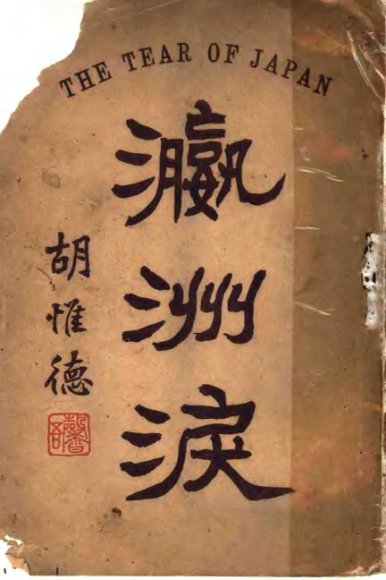 THE TEAR OF JAPAN
瀛洲淚
胡惟德